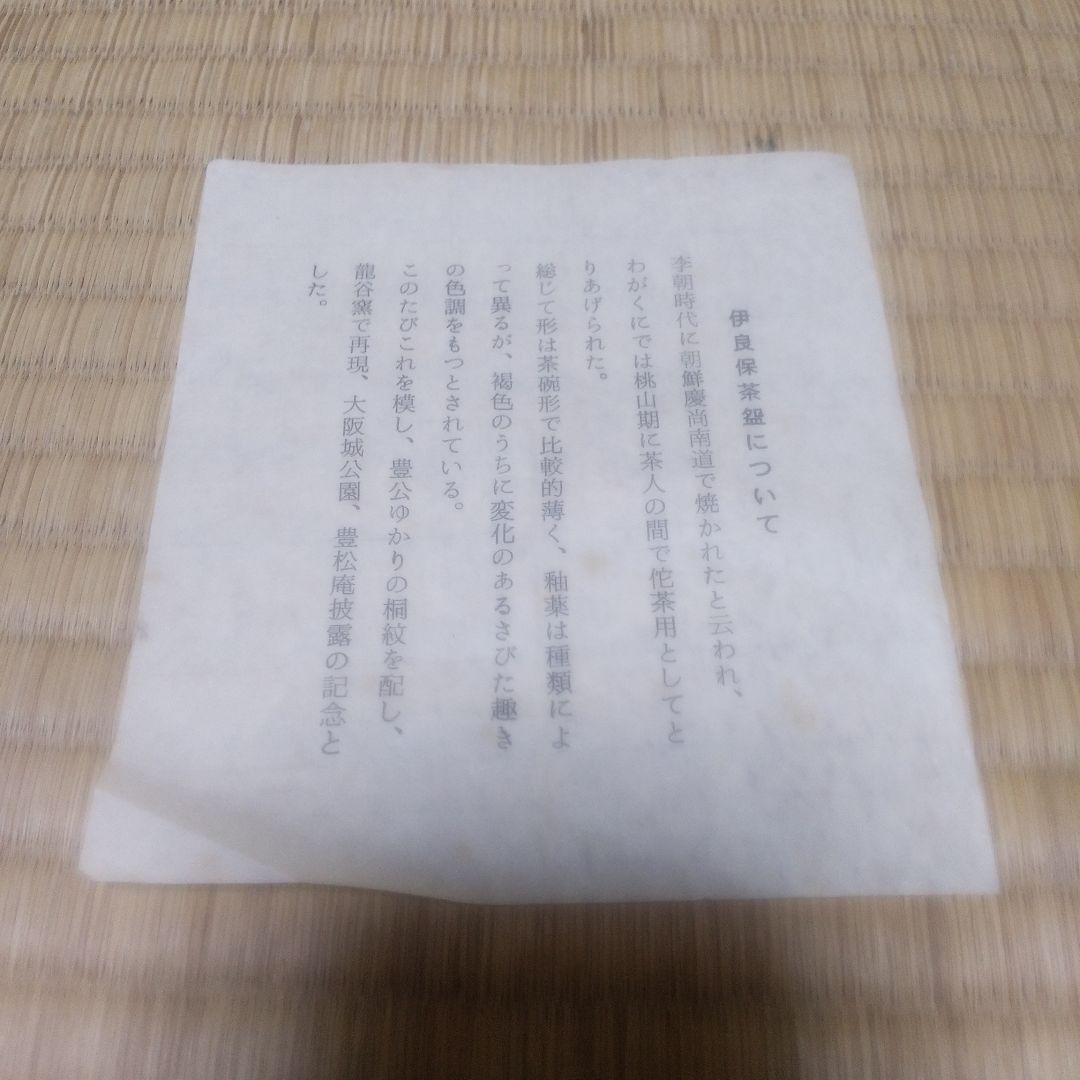 伊良保茶盌について
李朝時代に朝鮮慶尚南道で焼かれたと云われ、
わがくにでは桃山期に茶人の間で侘茶用としてと
りあげられた。
総じて形は茶碗形で比較的薄く、釉薬は種類によ
って異るが、褐色のうちに変化のあるさびた趣き
の色調をもつとされている。
このたびこれを模し、豊公ゆかりの桐紋を配し、
龍谷窯で再現、大阪城公園、豊松庵披露の記念と
した。